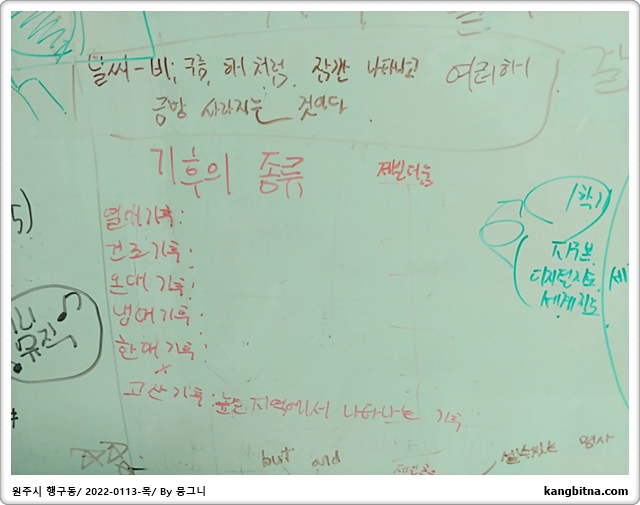 날씨-비, 구름, 해처럼 잠깐 나타나고
금방 사라지는 것이다.
기후의 종류
열대기후:
건조기후:
온대기후:
냉대기후:
한대기후:
고산기후: 높은 지역에서 나타나는 기후
1학기
지구본
디지털지도
세계지도
세
뮤직
but and
명사
원주시 행구동/ 2022-0113-목/ By 몽그니
kangbitna.com